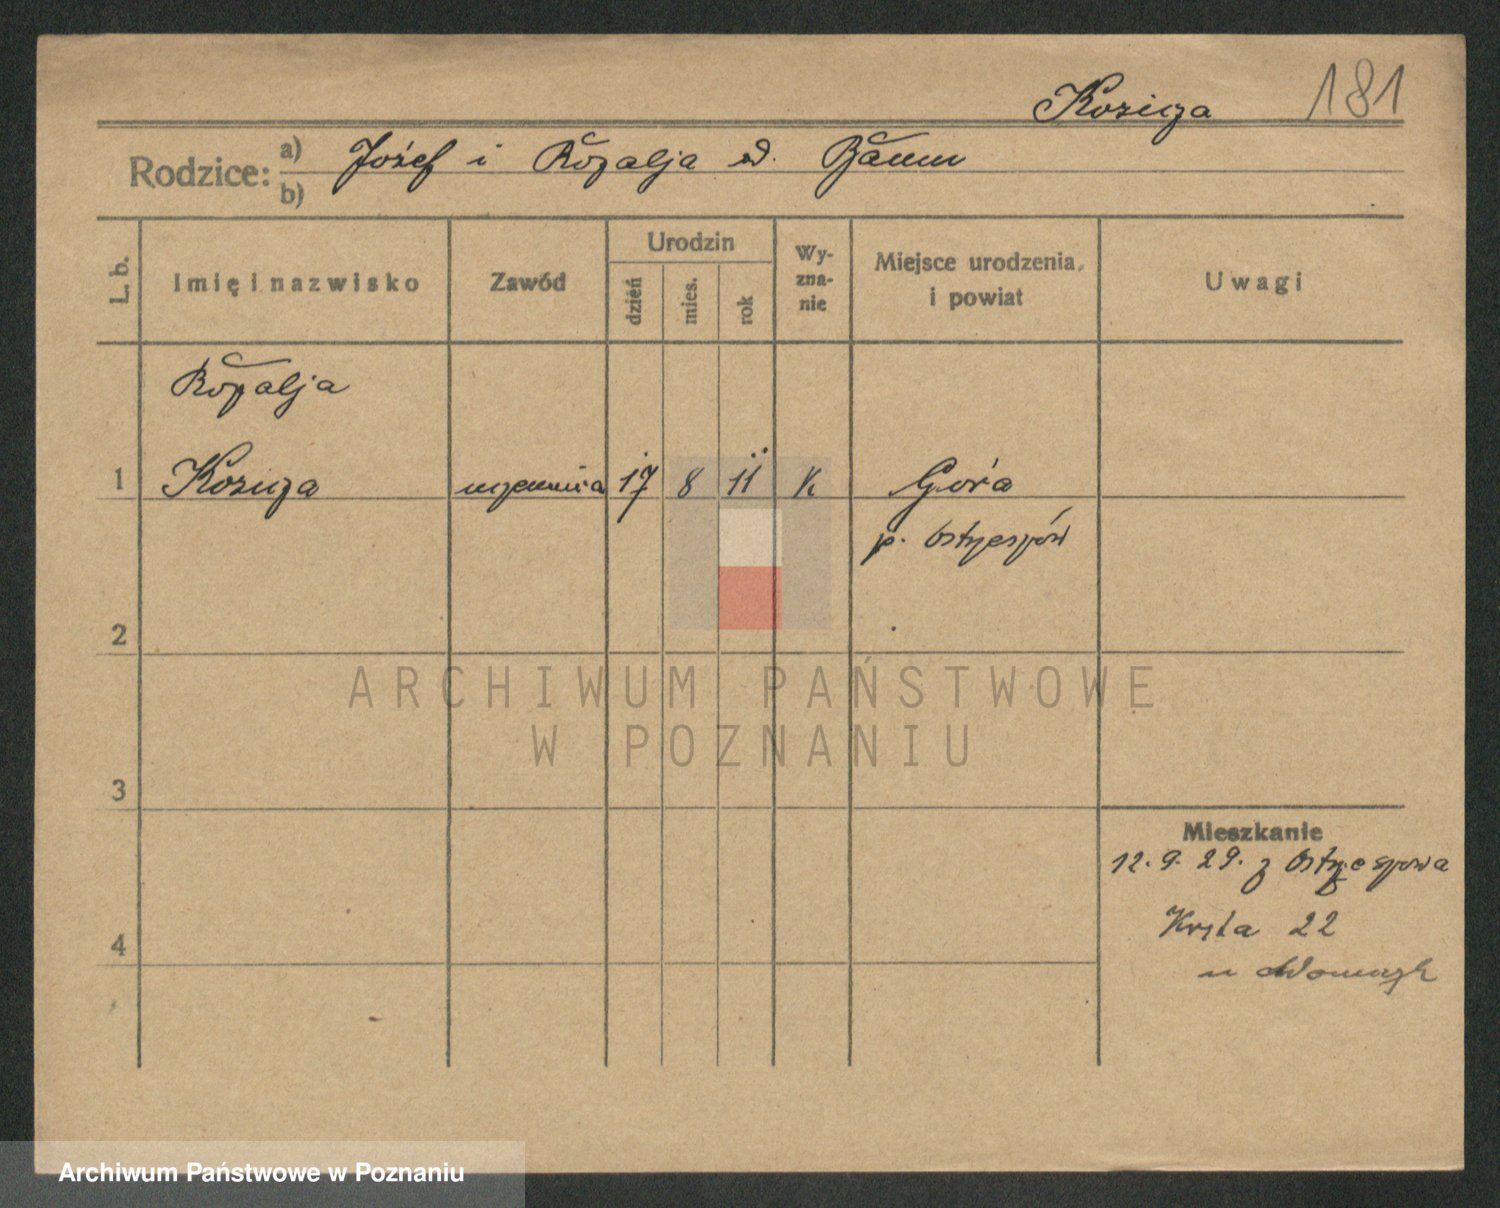 Koziza 181
Rodzice: a) Józef i Rozalja zd. Baum
b)
L. b. Imię i nazwisko Zawód Urodzin dzień mies. rok Wy-zna-nie Miejsce urodzenia, i powiat Uwagi
Rozalja
1 Koziza uczennica 17 8 11 K Góra
p. Ostrzeszów
2
ARCHIWUM PAŃSTWOWE
W POZNANIU
3
Mieszkanie
12.9.29. z Ostrzeszowa
4 22
u
Archiwum Państwowe w Poznaniu